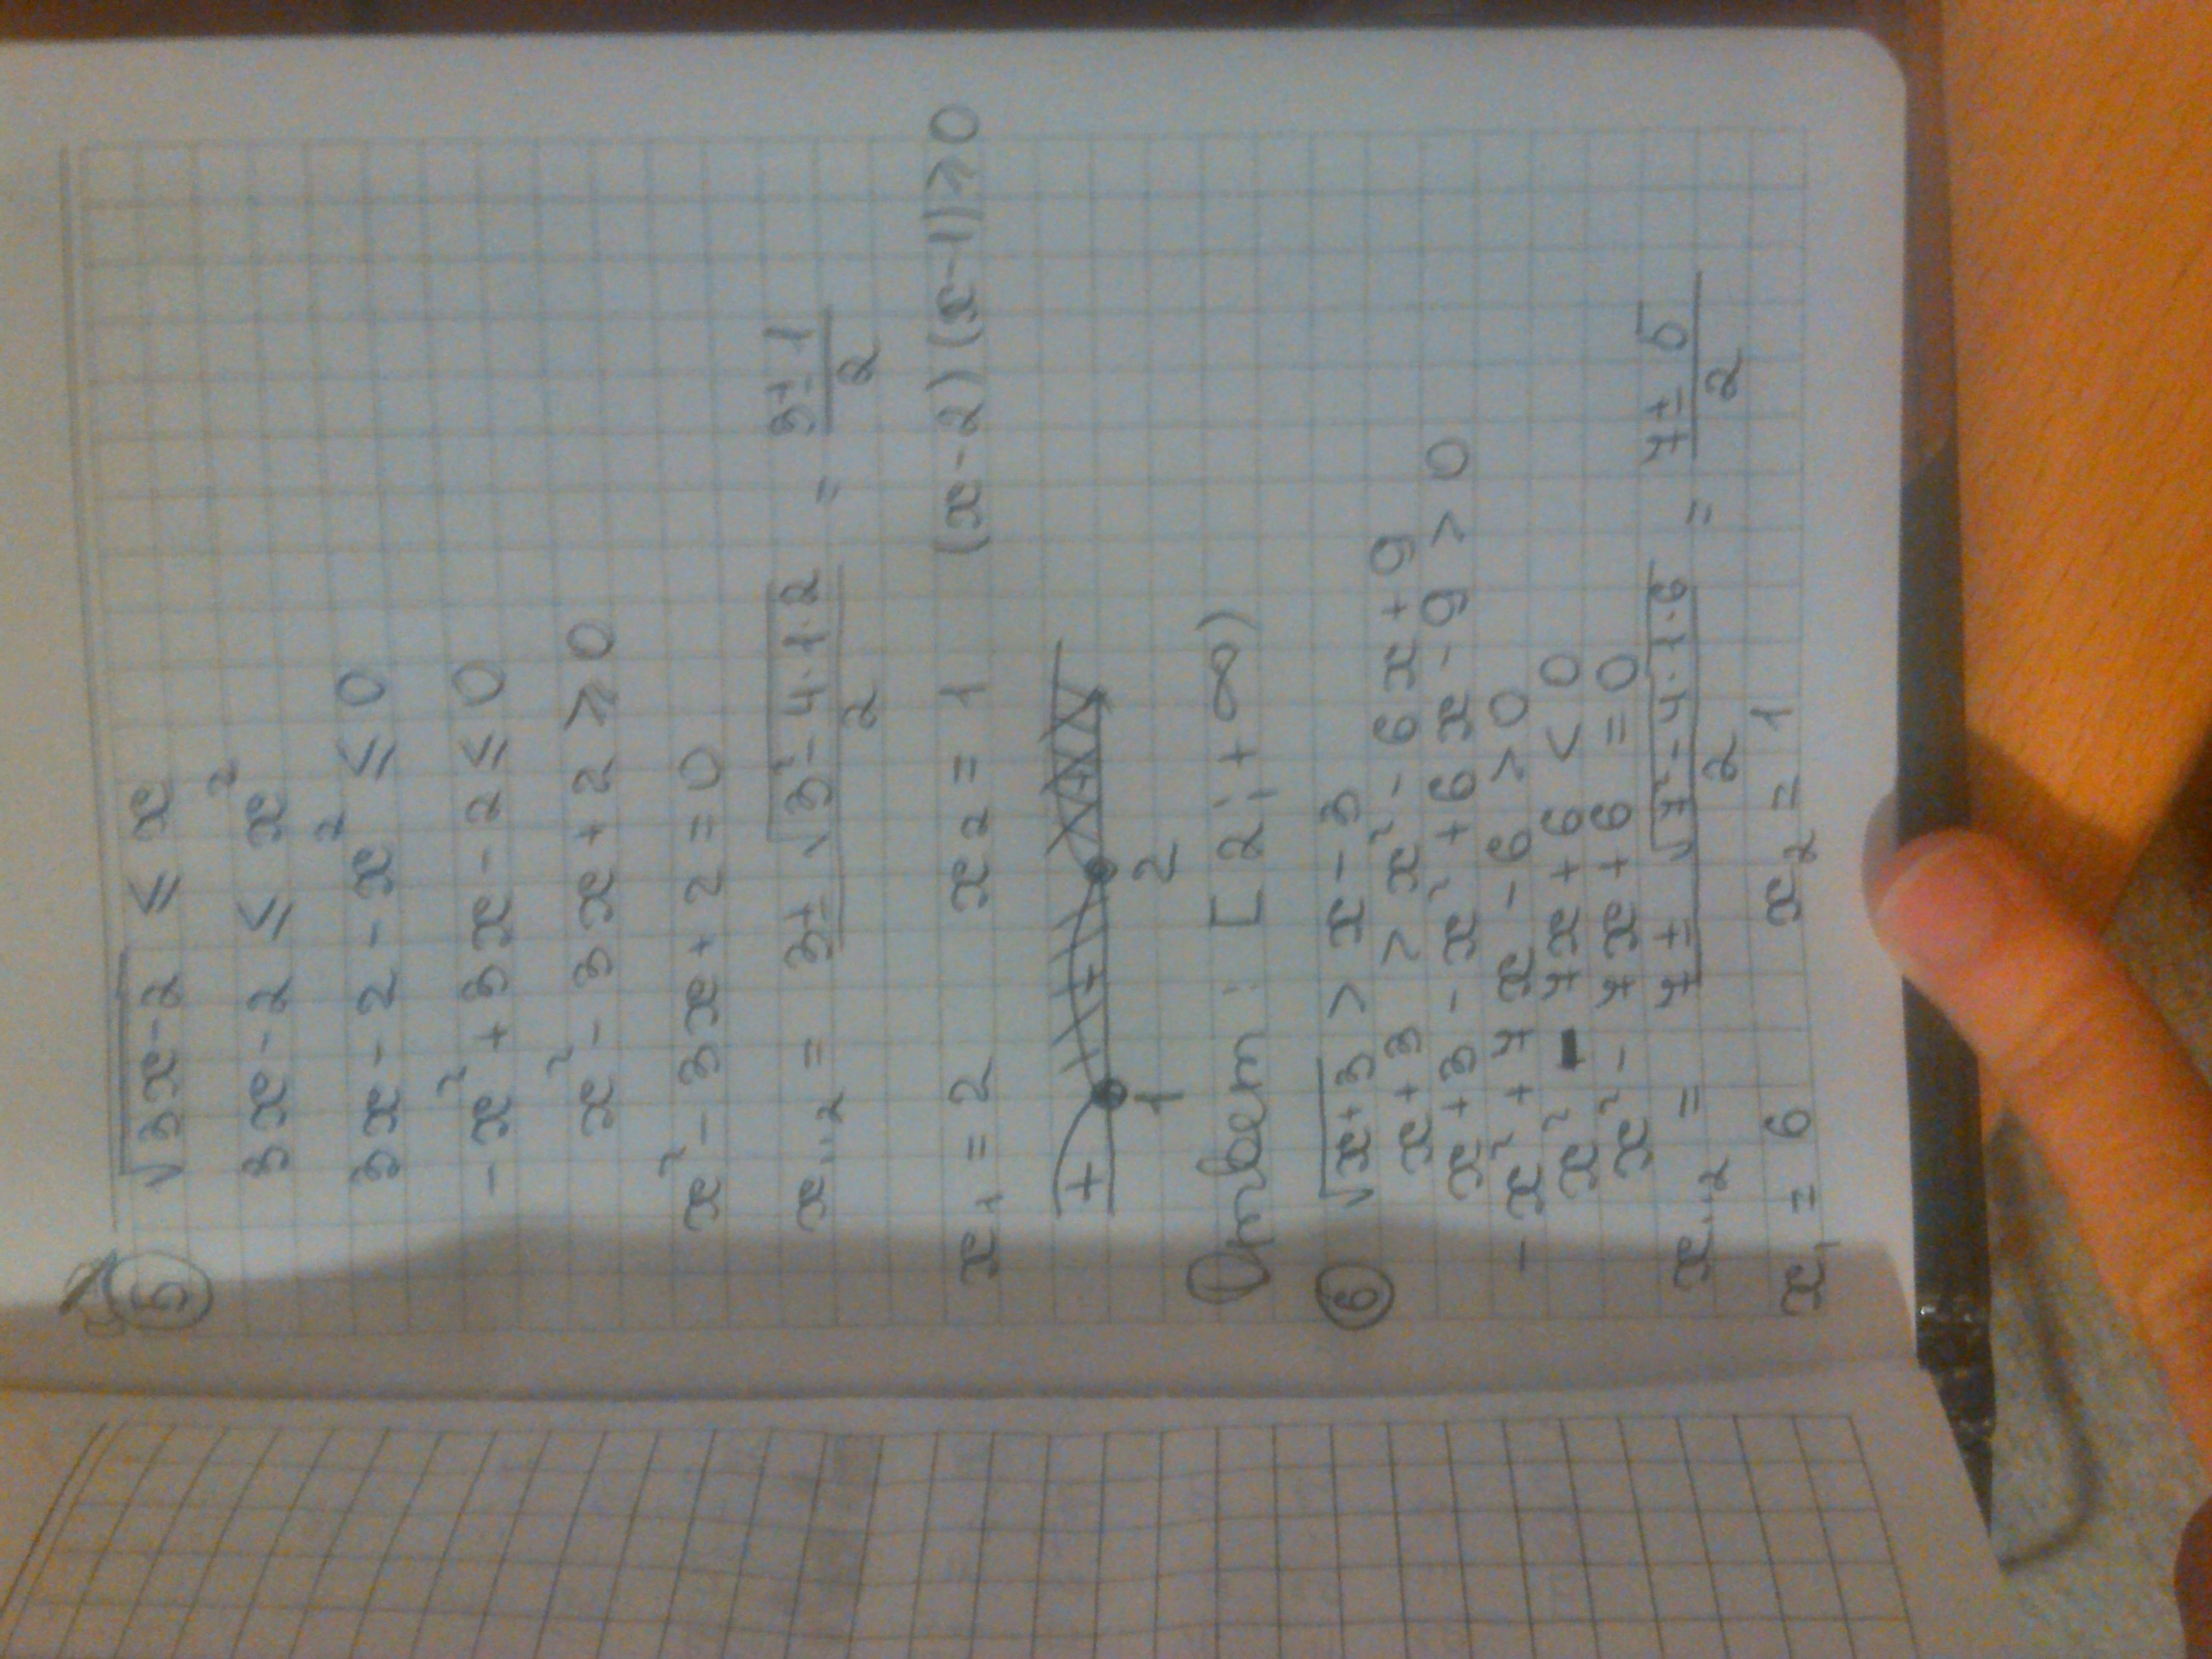 ⑤ √(3x-2) ≤ x
3x-2 ≤ x²
3x-2-x² ≤ 0
-x²+3x-2 ≤ 0
x²-3x+2 ⩾ 0
x²-3x+2=0
x₁,₂ = (3±√(3²-4·1·2))/2 = (3±1)/2
x₁=2 x₂=1 (x-2)(x-1)⩾0
+ + +
1 2
Ответ: [2;+∞)
⑥ √(x+3) > x-3
x+3 > x²-6x+9
x+3-x²+6x-9>0
-x²+7x-6>0
x²-7x+6<0
x²-7x+6=0
x₁,₂ = (7±√(7²-4·1·6))/2 = (7±5)/2
x₁=6 x₂=1